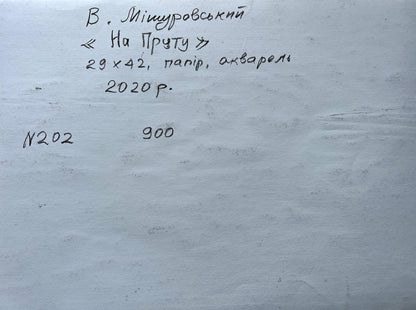 В. Мішуровський
« На Пруту »
29 × 42, папір, акварель
2020 р.
N202 900